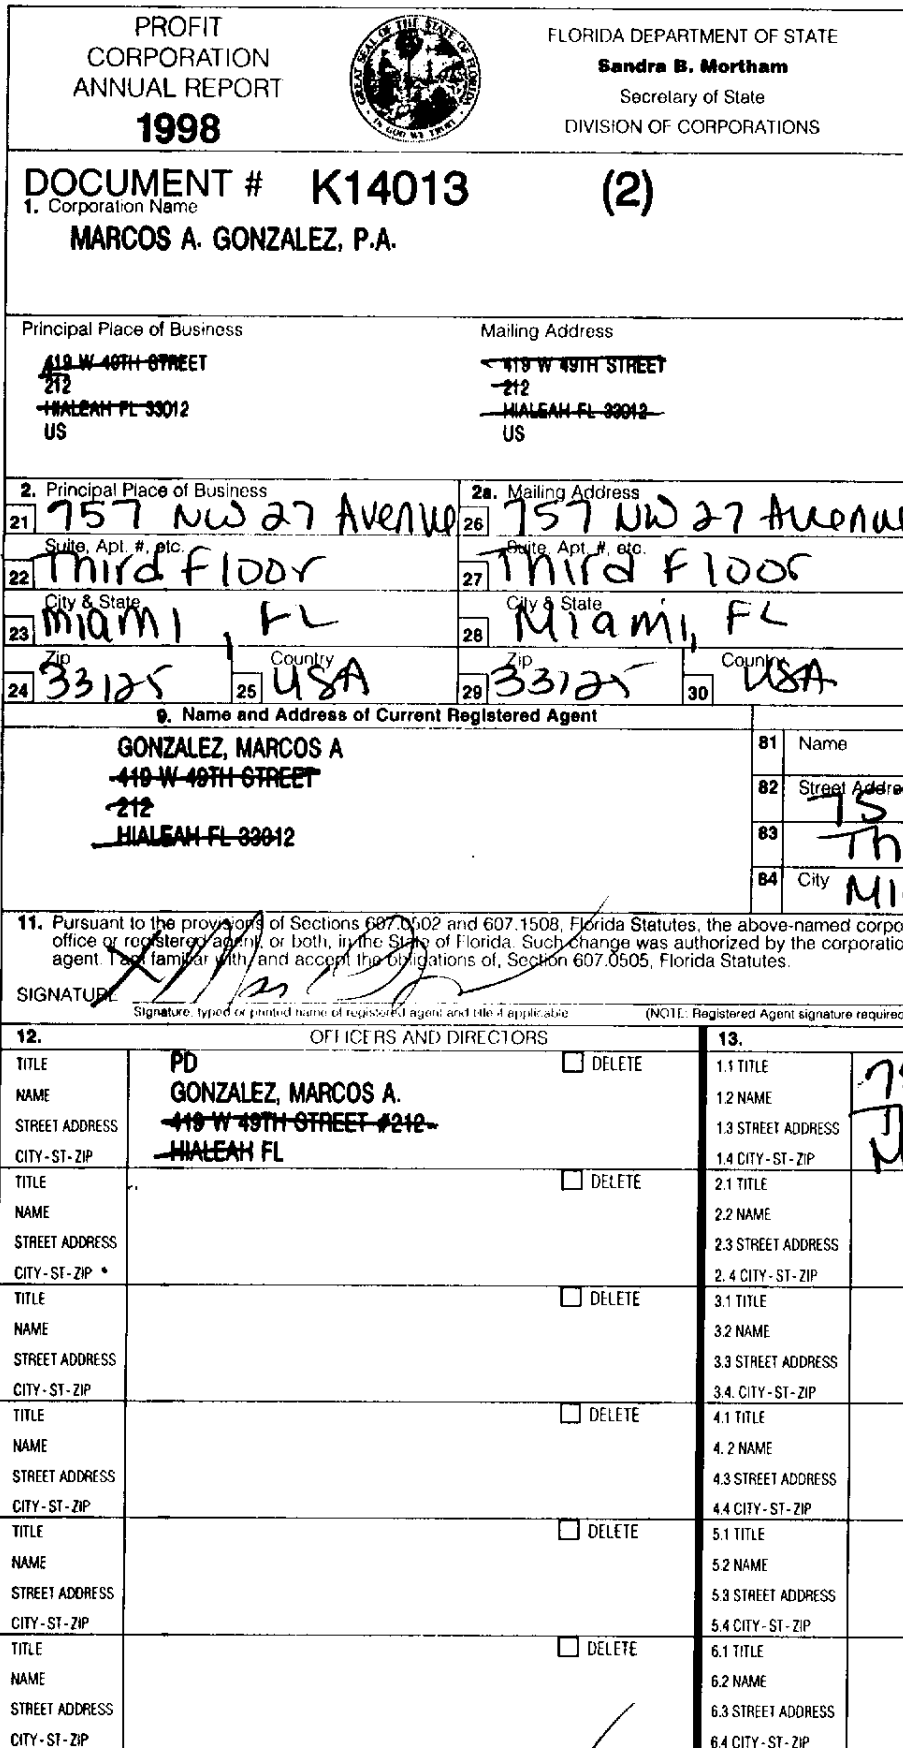 PROFIT
CORPORATION
ANNUAL REPORT
1998
GREAT SEAL OF THE STATE OF FLORIDA
IN GOD WE TRUST
FLORIDA DEPARTMENT OF STATE
Sandra B. Mortham
Secretary of State
DIVISION OF CORPORATIONS
DOCUMENT # K14013 (2)
1. Corporation Name
MARCOS A. GONZALEZ, P.A.
Principal Place of Business
419 W 49TH STREET
212
HIALEAH FL 33012
US
Mailing Address
419 W 49TH STREET
212
HIALEAH FL 33012
US
2. Principal Place of Business
21 757 NW 27 Avenue
Suite, Apt. #, etc.
22 Third Floor
City & State
23 Miami, FL
Zip
24 33125
Country
25 USA
2a. Mailing Address
26 757 NW 27 Avenue
Suite, Apt. #, etc.
27 Third Floor
City & State
28 Miami, FL
Zip
29 33125
Country
30 USA
9. Name and Address of Current Registered Agent
GONZALEZ, MARCOS A
419 W 49TH STREET
212
HIALEAH FL 33012
81 Name
82 Street Addre
75
83 Th
84 City Mi
11. Pursuant to the provisions of Sections 607.0502 and 607.1508, Florida Statutes, the above-named corpo
office or registered agent, or both, in the State of Florida. Such change was authorized by the corporatio
agent. I am familiar with, and accept the obligations of, Section 607.0505, Florida Statutes.
SIGNATURE
Signature, typed or printed name of registered agent and title if applicable (NOTE: Registered Agent signature required
12. OFFICERS AND DIRECTORS 13.
TITLE PD DELETE 1.1 TITLE
NAME GONZALEZ, MARCOS A. 1.2 NAME
STREET ADDRESS 419 W 49TH STREET #212 1.3 STREET ADDRESS
CITY-ST-ZIP HIALEAH FL 1.4 CITY-ST-ZIP
TITLE DELETE 2.1 TITLE
NAME 2.2 NAME
STREET ADDRESS 2.3 STREET ADDRESS
CITY-ST-ZIP 2.4 CITY-ST-ZIP
TITLE DELETE 3.1 TITLE
NAME 3.2 NAME
STREET ADDRESS 3.3 STREET ADDRESS
CITY-ST-ZIP 3.4. CITY-ST-ZIP
TITLE DELETE 4.1 TITLE
NAME 4.2 NAME
STREET ADDRESS 4.3 STREET ADDRESS
CITY-ST-ZIP 4.4 CITY-ST-ZIP
TITLE DELETE 5.1 TITLE
NAME 5.2 NAME
STREET ADDRESS 5.3 STREET ADDRESS
CITY-ST-ZIP 5.4 CITY-ST-ZIP
TITLE DELETE 6.1 TITLE
NAME 6.2 NAME
STREET ADDRESS 6.3 STREET ADDRESS
CITY-ST-ZIP 6.4 CITY-ST-ZIP